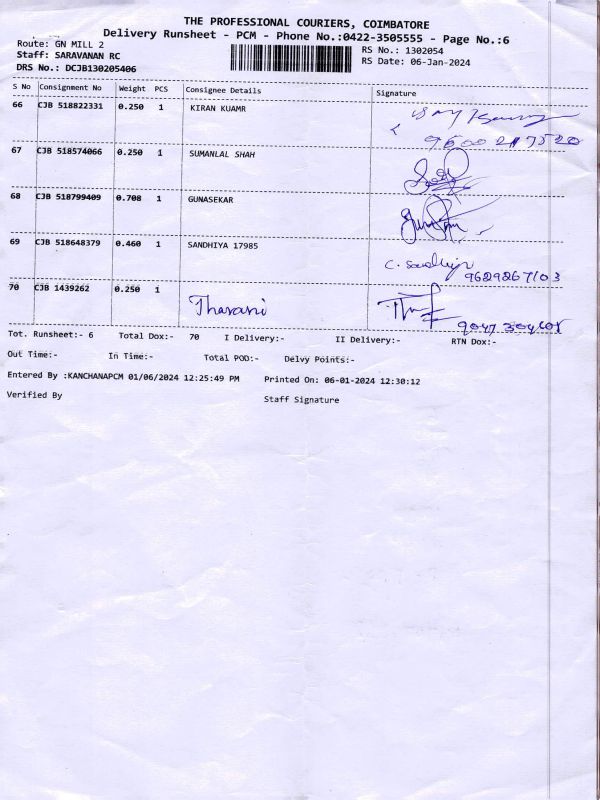 THE PROFESSIONAL COURIERS, COIMBATORE
Delivery Runsheet - PCM - Phone No.:0422-3505555 - Page No.:6
Route: GN MILL 2
Staff: SARAVANAN RC
DRS No.: DCJB130205406
RS No.: 1302054
RS Date: 06-Jan-2024
S No Consignment No Weight PCS Consignee Details Signature
66 CJB 518822331 0.250 1 KIRAN KUAMR
67 CJB 518574066 0.250 1 SUMANLAL SHAH
68 CJB 518799409 0.708 1 GUNASEKAR
69 CJB 518648379 0.460 1 SANDHIYA 17985
9629267103
70 CJB 1439262 0.250 1 Tharani
Tot. Runsheet:- 6 Total Dox:- 70 I Delivery:- II Delivery:- RTN Dox:-
Out Time:- In Time:- Total POD:- Delvy Points:-
Entered By :KANCHANAPCM 01/06/2024 12:25:49 PM Printed On: 06-01-2024 12:30:12
Verified By Staff Signature